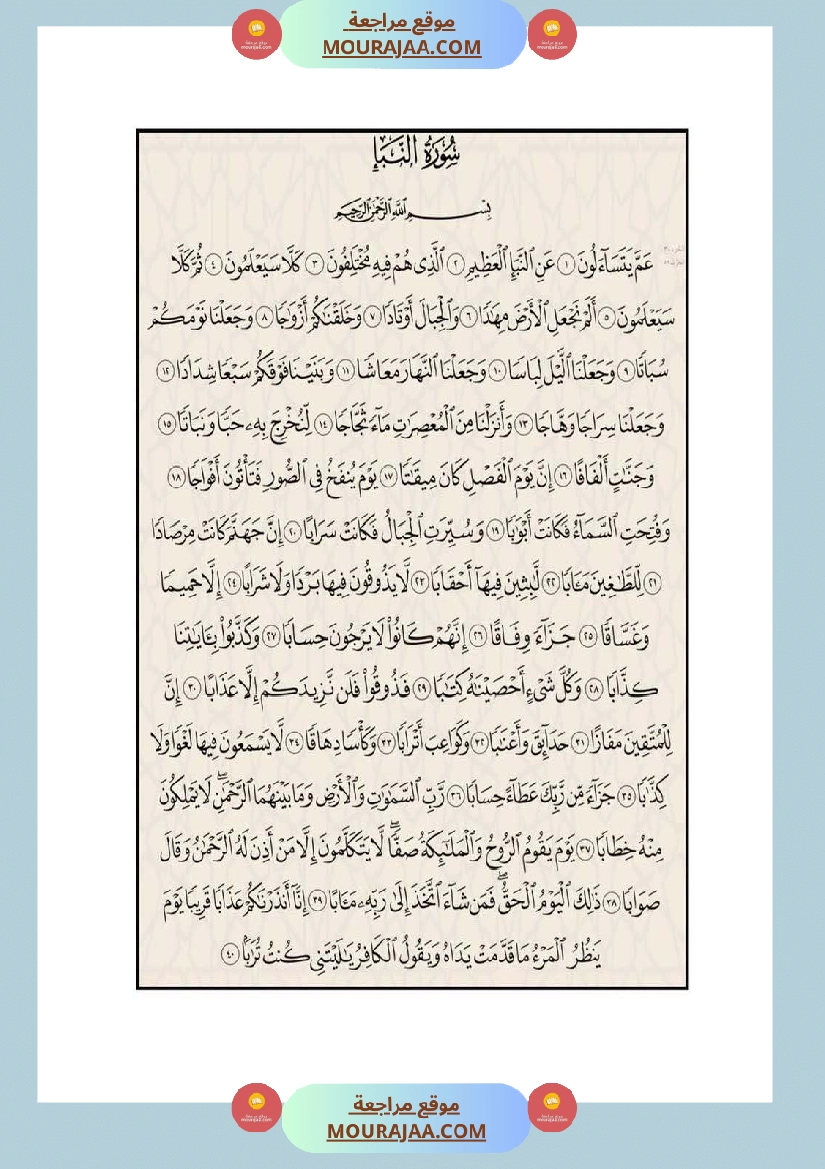 موقع مراجعة
MOURAJAA.COM
سُورَةُ النَّبَإِ
بِسْمِ اللَّهِ الرَّحْمَٰنِ الرَّحِيمِ
عَمَّ يَتَسَآءَلُونَ ١ عَنِ ٱلنَّبَإِ ٱلْعَظِيمِ ٢ ٱلَّذِى هُمْ فِيهِ مُخْتَلِفُونَ ٣ كَلَّا سَيَعْلَمُونَ ٤ ثُمَّ كَلَّا
سَيَعْلَمُونَ ٥ أَلَمْ نَجْعَلِ ٱلْأَرْضَ مِهَٰدًا ٦ وَٱلْجِبَالَ أَوْتَادًا ٧ وَخَلَقْنَٰكُمْ أَزْوَٰجًا ٨ وَجَعَلْنَا نَوْمَكُمْ
سُبَاتًا ٩ وَجَعَلْنَا ٱلَّيْلَ لِبَاسًا ١٠ وَجَعَلْنَا ٱلنَّهَارَ مَعَاشًا ١١ وَبَنَيْنَا فَوْقَكُمْ سَبْعًا شِدَادًا ١٢
وَجَعَلْنَا سِرَاجًا وَهَّاجًا ١٣ وَأَنزَلْنَا مِنَ ٱلْمُعْصِرَٰتِ مَآءً ثَجَّاجًا ١٤ لِّنُخْرِجَ بِهِۦ حَبًّا وَنَبَاتًا ١٥
وَجَنَّٰتٍ أَلْفَافًا ١٦ إِنَّ يَوْمَ ٱلْفَصْلِ كَانَ مِيقَٰتًا ١٧ يَوْمَ يُنفَخُ فِى ٱلصُّورِ فَتَأْتُونَ أَفْوَاجًا ١٨
وَفُتِحَتِ ٱلسَّمَآءُ فَكَانَتْ أَبْوَٰبًا ١٩ وَسُيِّرَتِ ٱلْجِبَالُ فَكَانَتْ سَرَابًا ٢٠ إِنَّ جَهَنَّمَ كَانَتْ مِرْصَادًا
٢١ لِّلطَّٰغِينَ مَـَٔابًا ٢٢ لَّٰبِثِينَ فِيهَآ أَحْقَابًا ٢٣ لَّا يَذُوقُونَ فِيهَا بَرْدًا وَلَا شَرَابًا ٢٤ إِلَّا حَمِيمًا
وَغَسَّاقًا ٢٥ جَزَآءً وِفَاقًا ٢٦ إِنَّهُمْ كَانُوا۟ لَا يَرْجُونَ حِسَابًا ٢٧ وَكَذَّبُوا۟ بِـَٔايَٰتِنَا
كِذَّابًا ٢٨ وَكُلَّ شَىْءٍ أَحْصَيْنَٰهُ كِتَٰبًا ٢٩ فَذُوقُوا۟ فَلَن نَّزِيدَكُمْ إِلَّا عَذَابًا ٣٠ إِنَّ
لِلْمُتَّقِينَ مَفَازًا ٣١ حَدَآئِقَ وَأَعْنَٰبًا ٣٢ وَكَوَاعِبَ أَتْرَابًا ٣٣ وَكَأْسًا دِهَاقًا ٣٤ لَّا يَسْمَعُونَ فِيهَا لَغْوًا وَلَا
كِذَّٰبًا ٣٥ جَزَآءً مِّن رَّبِّكَ عَطَآءً حِسَابًا ٣٦ رَّبِّ ٱلسَّمَٰوَٰتِ وَٱلْأَرْضِ وَمَا بَيْنَهُمَا ٱلرَّحْمَٰنِ ۖ لَا يَمْلِكُونَ
مِنْهُ خِطَابًا ٣٧ يَوْمَ يَقُومُ ٱلرُّوحُ وَٱلْمَلَٰٓئِكَةُ صَفًّا ۖ لَّا يَتَكَلَّمُونَ إِلَّا مَنْ أَذِنَ لَهُ ٱلرَّحْمَٰنُ وَقَالَ
صَوَابًا ٣٨ ذَٰلِكَ ٱلْيَوْمُ ٱلْحَقُّ ۖ فَمَن شَآءَ ٱتَّخَذَ إِلَىٰ رَبِّهِۦ مَـَٔابًا ٣٩ إِنَّآ أَنذَرْنَٰكُمْ عَذَابًا قَرِيبًا يَوْمَ
يَنظُرُ ٱلْمَرْءُ مَا قَدَّمَتْ يَدَاهُ وَيَقُولُ ٱلْكَافِرُ يَٰلَيْتَنِى كُنتُ تُرَٰبًۢا ٤٠
موقع مراجعة
MOURAJAA.COM